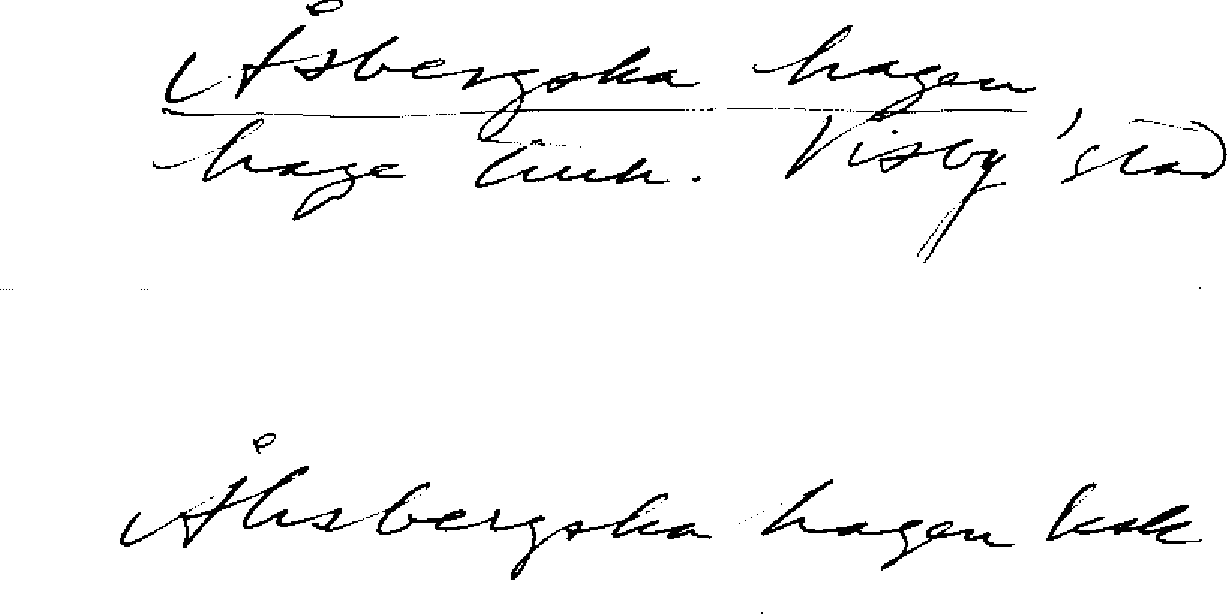 Åsbergska hagen
hage Visby stad
Åhsbergska hagen